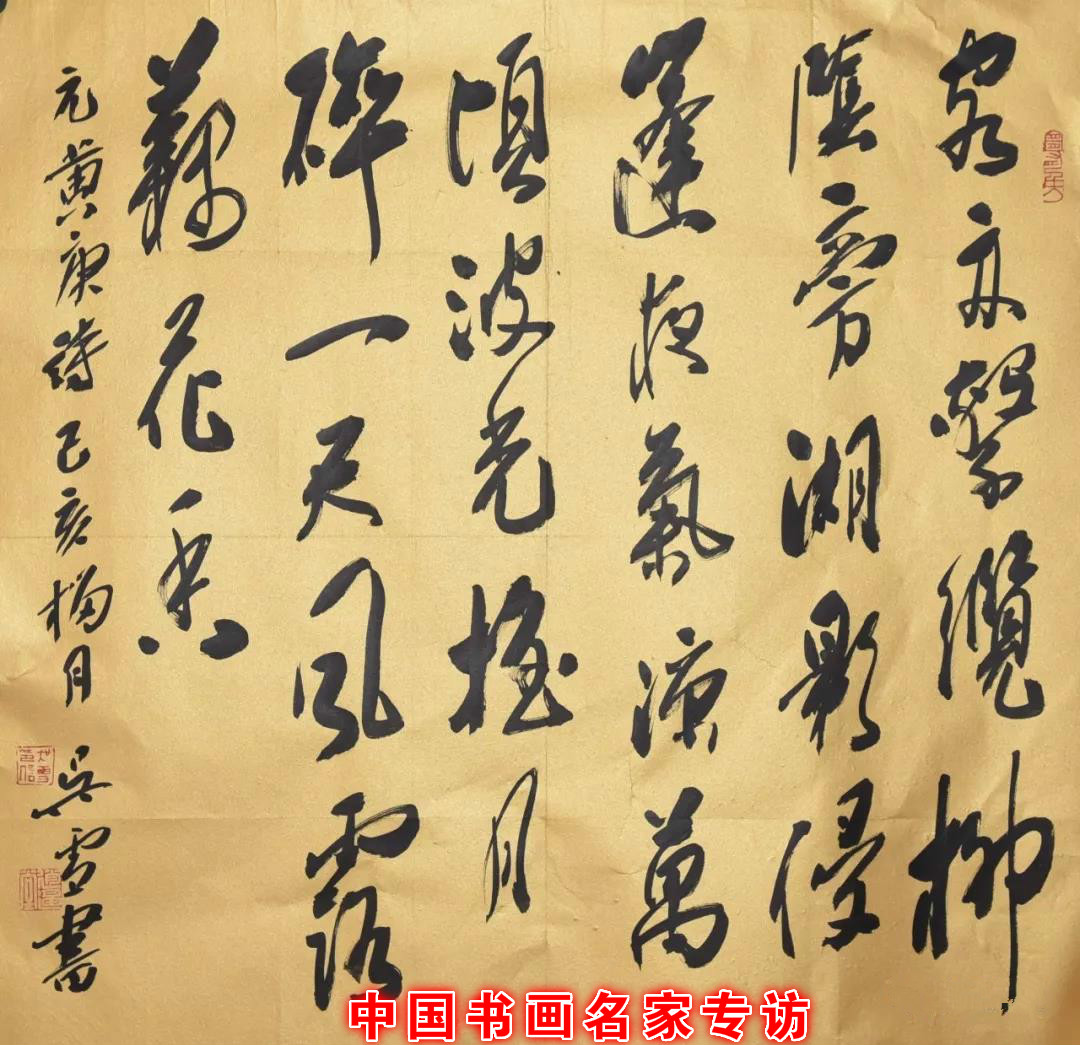 客舟繫纜柳
陰旁湖影侵
篷夜氣涼萬
頃波光搖月
碎一天風露
藕花香
元黄庚詩己亥榴月 吴雪書
中国书画名家专访